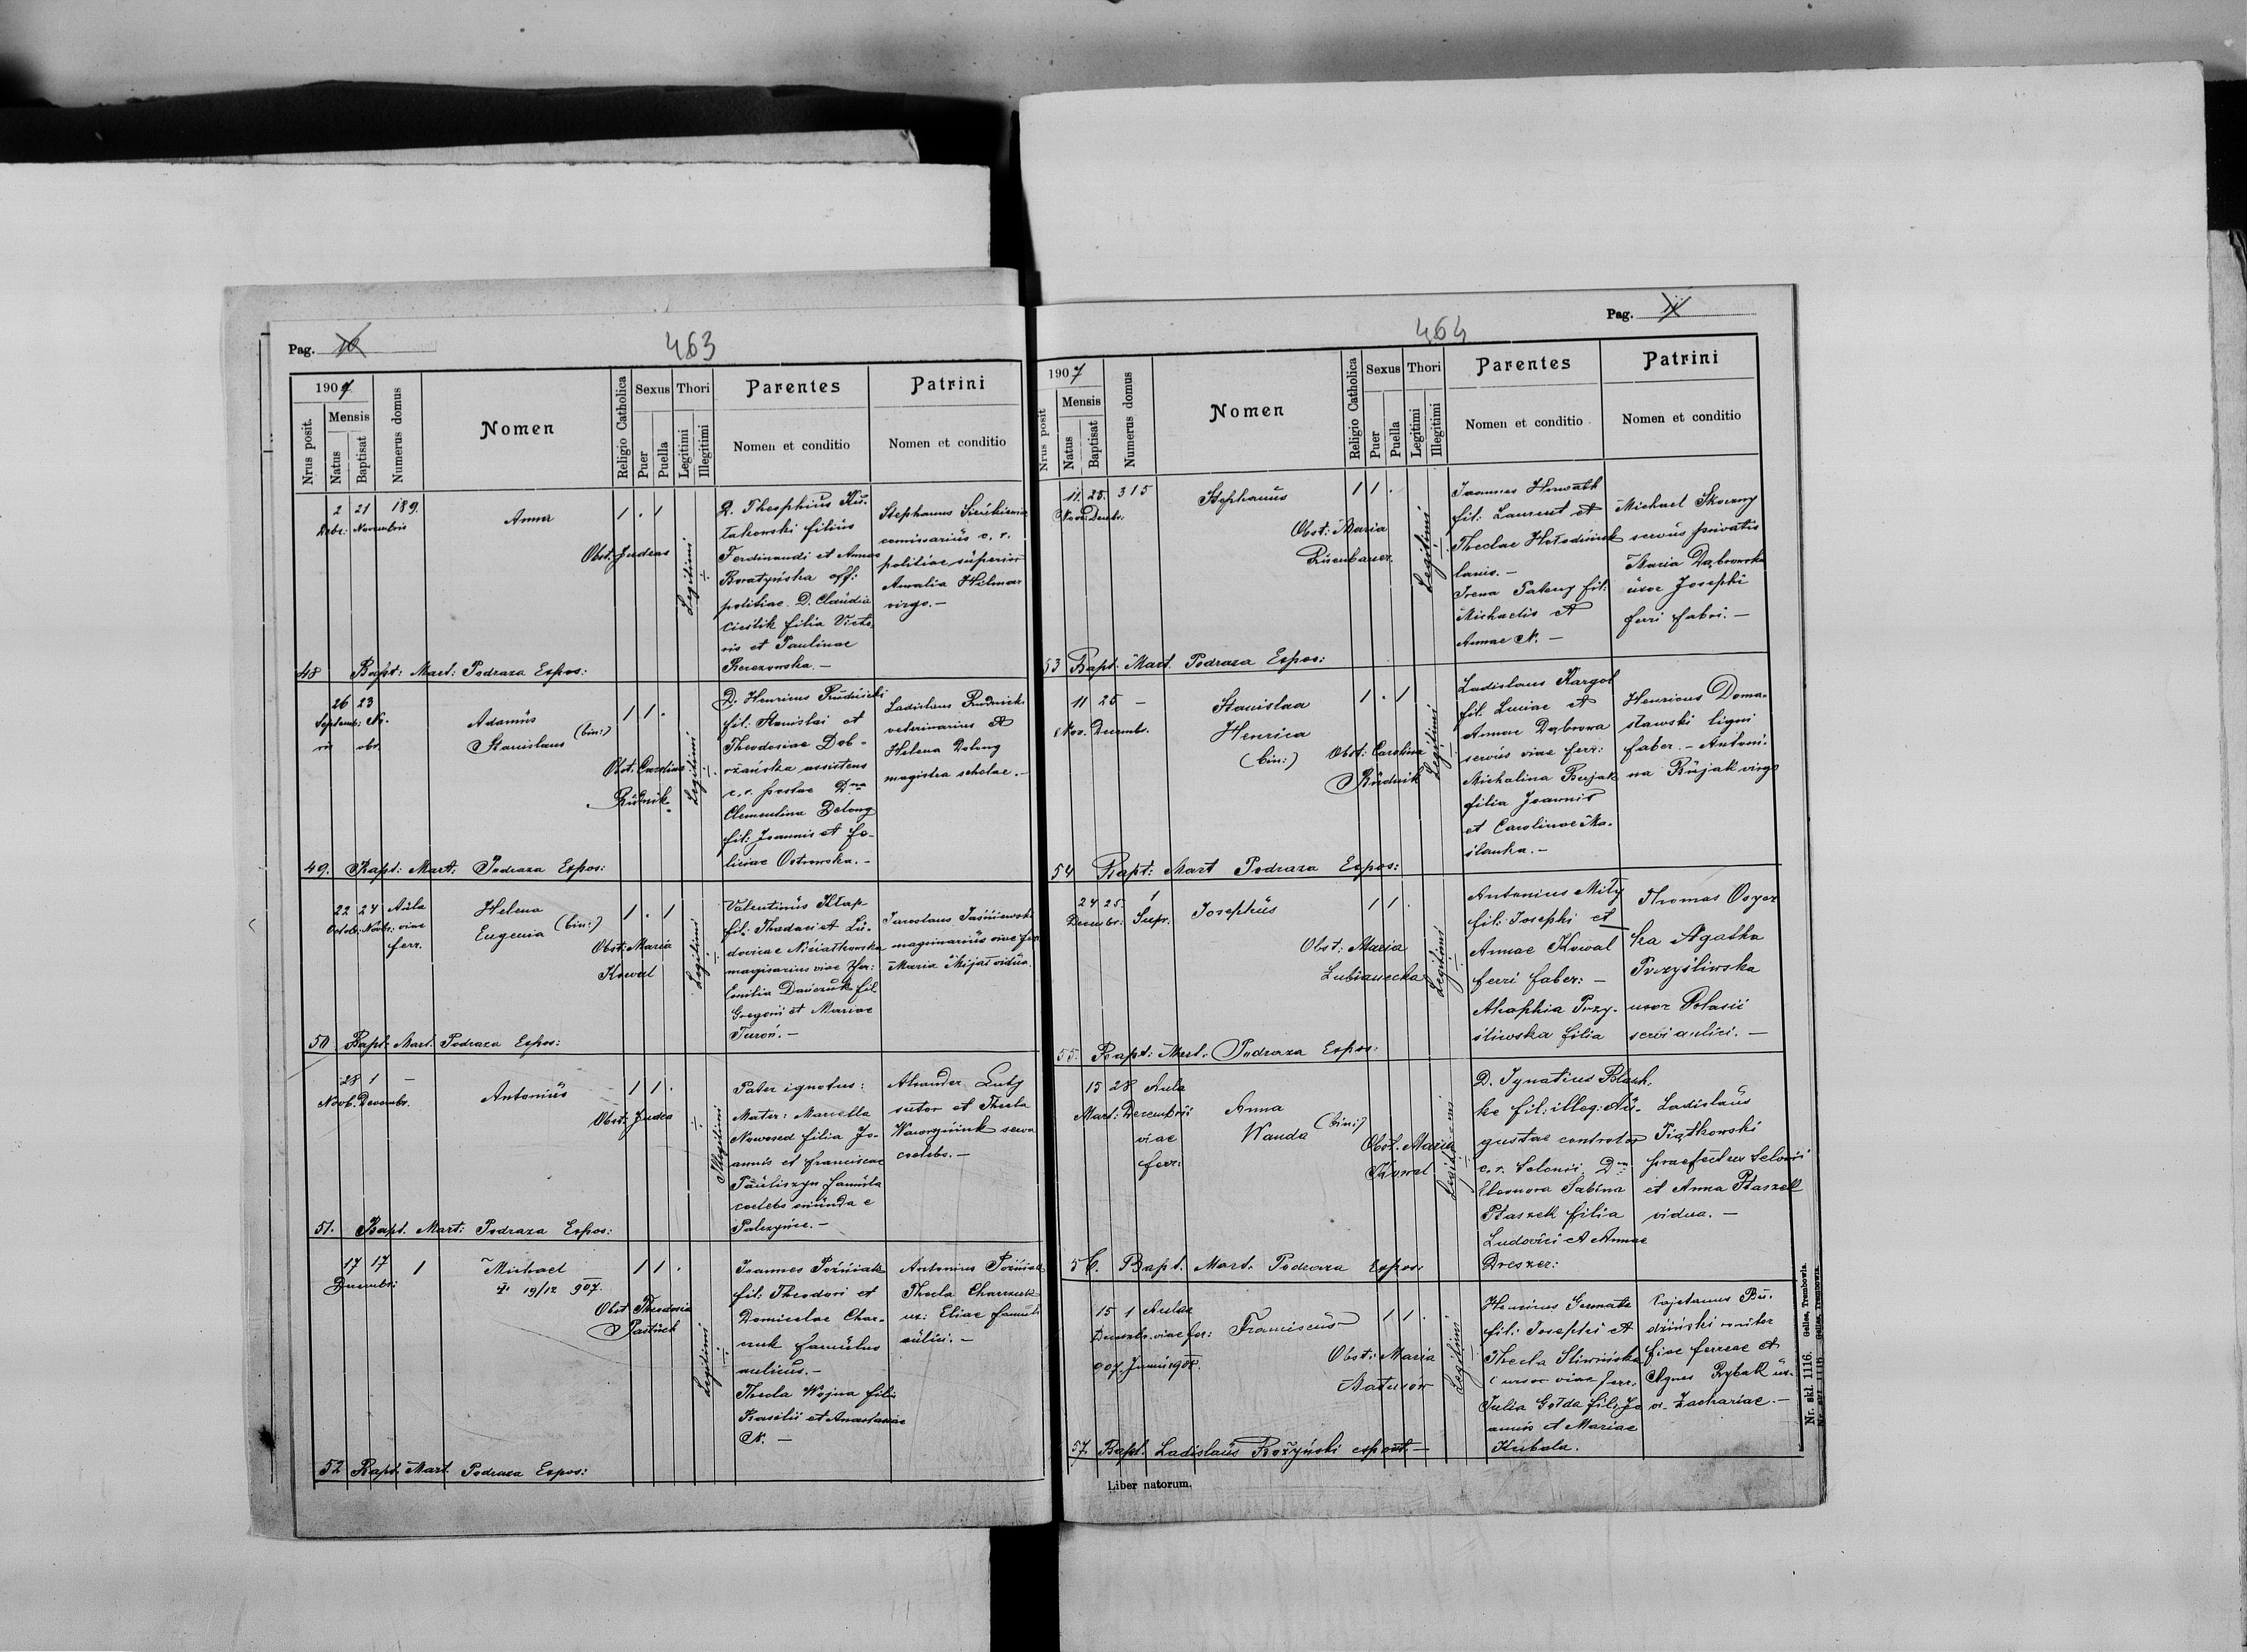 Pag. 10
463
1907.
Nrus posit.
Mensis
Natus
Baptisat
Numerus domus
Nomen
Religio Catholica
Sexus
Puer
Puella
Thori
Legitimi
Illegitimi
Parentes
Nomen et conditio
Patrini
Nomen et conditio
2 21 189.
Novembris
Anna
1 . 1
Obst. Judeas
Legitimi
Ferdinandi et Annae
Boratyńska off:
politiae. D. Claudia
Cieślik filia Victo-
ris et Paulinae
Berezowska. —
Stephanus
comissarius c. r.
politiae superior
Amalia
virgo. —
48 Bapt: Mart: Podraza Expos:
26 23
Septemb: No-
ris vbr.
Adamus
Stanislaus (bin:)
1 1 .
Obst. Carolina
Rudnik.
Legitimi
D. Henricus Rudnicki
fil: Stanislai et
Theodosiae Dob-
rzańska assistens
c. r. postae Dna
Clementina Delong
fil: Joannis et Fe-
liciae Ostrowska. —
Ladislaus Rudnicki
veterinarius et
Helena Delong
magistra scholae. —
49. Bapt: Mart. Podraza Expos:
22 24 Aula
Octob: Novbr: viae
ferr.
Helena
Eugenia (bin:)
1 . 1
Obst: Maria
Kowal
Legitimi
Valentinus Kłap
fil: Thadaei et Lu-
dovicae
viae fer:
Emilia Dańczuk fil.
Gregorii et Mariae
Turoń. —
Jaroslaus Jaśniewski
maginarius viae fer
Maria Mijas vidua.
50 Bapt. Mart. Podraza Expos:
28 1 —
Novb. Decembr.
Antonius
1 1 .
Obst: Judea
Illegitimi
Pater ignotus:
Mater: Marcella
Nowosed filia Jo-
annis et Franciscae
Pauliszyn famula
coelebs oriunda e
Palczyńce. —
Alexander Luty
sutor et Thecla
Wawryniuk serva
coelebs. —
51. Bapt. Mart: Podraza Expos:
17 17 1
Decembr:
Michael
† 19/12 907.
1 1 .
Obst Theodosia
Pastuch
Legitimi
Joannes Poźniak
fil: Theodori et
Domicelae Char-
czuk famulus
aulicus. —
Thecla Wojna filia
Basilii et Anastasiae
N. —
Antonius Poźniak
Thecla Charczuk
ux: Eliae famuli
aulici. —
52 Bapt. Mart. Podraza Expos:
Pag. 11
464
1907
Nrus posit
Mensis
Natus
Baptisat
Numerus domus
Nomen
Religio Catholica
Sexus
Puer
Puella
Thori
Legitimi
Illegitimi
Parentes
Nomen et conditio
Patrini
Nomen et conditio
11. 25. 315
Nov. Decmbr.
Stephanus
1 1 .
Obst: Maria
Legitimi
Joannes Horwath
fil: Laurent et
Theclae
Irena Pateny fil:
Michaelis et
Annae N. —
Michael Skoczny
servus privatis
Maria Dąbrowska
uxor Josephi
ferri fabri. —
53 Bapt. Mart. Podraza Expos:
11 25 —
Nov. Decembr.
Stanislaa
Henrica
(bin:)
1 . 1
Obst: Carolina
Rudnik
Legitimi
Ladislaus Kargol
fil. Luciae et
Annae Dąbrowa
servus viae ferr:
Michalina Bujak
filia Joannis
et Carolinae Ma-
ślanka. —
Henricus Doma-
sławski ligni
faber. — Antoni-
na Bujak virgo
54 Bapt: Mart Podraza Expos:
24 25. 1
Decembr: Supr.
Josephus
1 1 .
Obst: Maria
Lubianecka
Legitimi
Antonius Miły
fil: Josephi et
Annae Kowal
ferri faber: —
Ahaphia Przy-
śliwska filia
Thomas
ka Agatha
Przyśliwska
uxor Potasii
servi aulici. —
55. Bapt: Mart. Podraza Expos:
15 28 Aula
Mart: Decembris
viae
ferr:
Anna
Wanda (bin:)
Obst. Maria
Kowal
Legitimi
D. Ignatius Blach.
ke fil: illeg: Au-
gustae controlor
c. r. Dna
Eleonora Sabina
Ptaszek filia
Ludovici et Annae
Dreszer:
Ladislaus
Piątkowski
praefectus
et Anna Ptaszek
vidua. —
56. Bapt. Mart. Podraza Expos:
15 1 Aulae
Decembr. viae fer:
907.
Franciscus
1 1 .
Obst: Maria
Matusów
Legitimi
Henricus
fil: Josephi et
Thecla Śliwińska
cursor viae ferr.
Julia Gołda fil: Jo
annis et Mariae
Kubala.
Cajetanus Bu-
dziński
viae ferreae et
Agnes Rybak ux-
or Zachariae. —
57. Bapt. Ladislaus Rożyński expost. —
Liber natorum.
Nr. skł. 1116. Gelles, Trembowla.